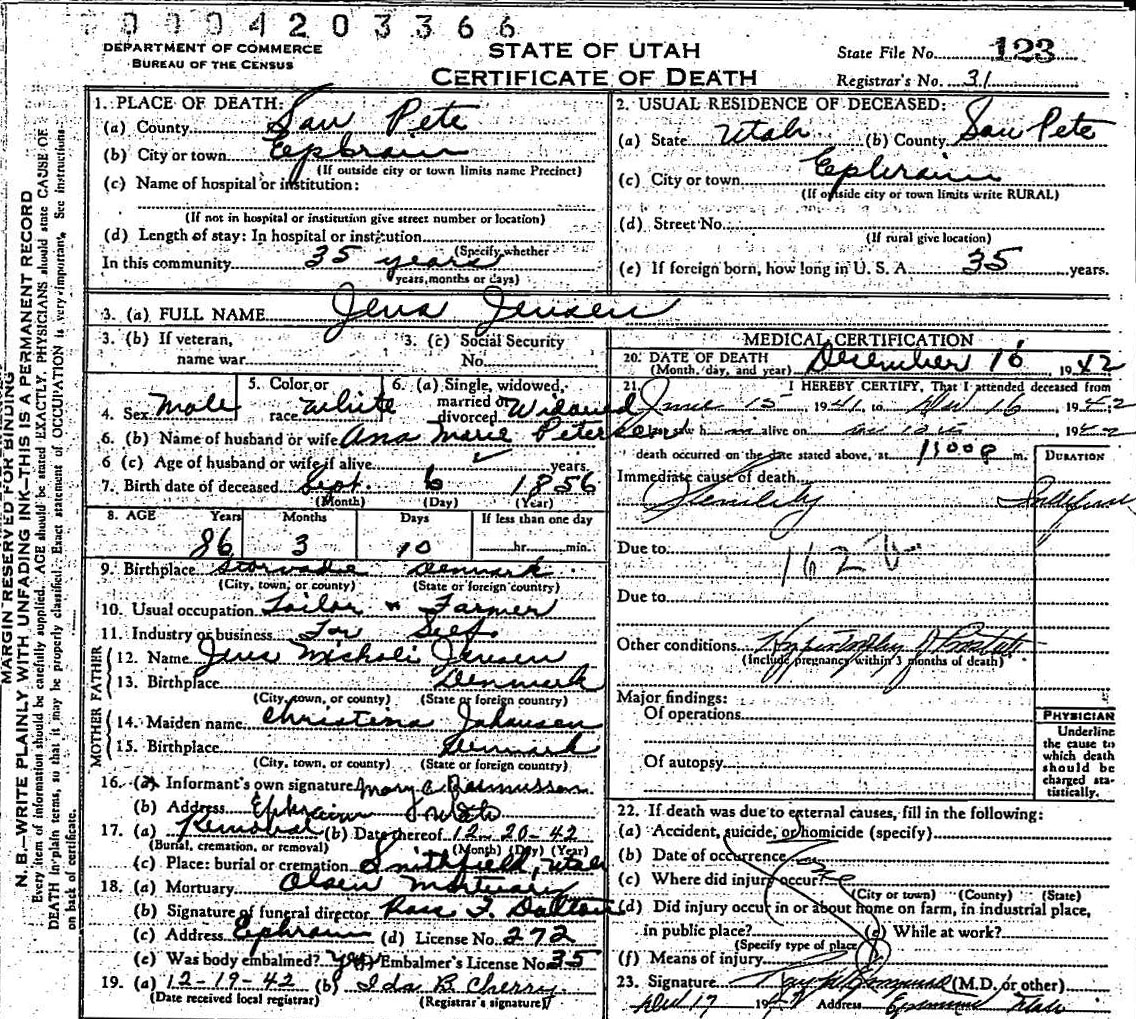 0004203366
DEPARTMENT OF COMMERCE
BUREAU OF THE CENSUS
STATE OF UTAH
CERTIFICATE OF DEATH
State File No. 123
Registrar's No. 31
MARGIN RESERVED FOR BINDING
N. B.—WRITE PLAINLY WITH UNFADING INK—THIS IS A PERMANENT RECORD
Every item of information should be carefully supplied. AGE should be stated EXACTLY. PHYSICIANS should state CAUSE OF
DEATH in plain terms, so that it may be properly classified. Exact statement of OCCUPATION is very important. See instructions
on back of certificate.
1. PLACE OF DEATH:
(a) County San Pete
(b) City or town Ephraim
(If outside city or town limits name Precinct)
(c) Name of hospital or institution:
(If not in hospital or institution give street number or location)
(d) Length of stay: In hospital or institution
(Specify whether
In this community 35 years
years, months or days)
2. USUAL RESIDENCE OF DECEASED:
(a) State Utah (b) County San Pete
(c) City or town Ephraim
(If outside city or town limits write RURAL)
(d) Street No.
(If rural give location)
(e) If foreign born, how long in U. S. A. 35 years.
3. (a) FULL NAME Jens Jensen
3. (b) If veteran,
name war
3. (c) Social Security
No.
4. Sex Male
5. Color or
race White
6. (a) Single, widowed,
married or
divorced Widowed
6. (b) Name of husband or wife Ana Marie Peterson
6 (c) Age of husband or wife if alive years.
7. Birth date of deceased Sept. 6 1856
(Month) (Day) (Year)
8. AGE Years Months Days If less than one day
86 3 10 hr. min.
9. Birthplace Denmark
(City, town, or county) (State or foreign country)
10. Usual occupation Tailor & Farmer
11. Industry or business For Self
FATHER
12. Name Jens Micholi Jensen
13. Birthplace Denmark
(City, town, or county) (State or foreign country)
MOTHER
14. Maiden name Christena Johansen
15. Birthplace Denmark
(City, town, or county) (State or foreign country)
16. (a) Informant's own signature Mary C. Rasmussen
(b) Address Ephraim Utah
17. (a) Removal (b) Date thereof 12-20-42
(Burial, cremation, or removal) (Month) (Day) (Year)
(c) Place: burial or cremation Smithfield, Utah
18. (a) Mortuary Olsen Mortuary
(b) Signature of funeral director Ross F. Dalton
(c) Address Ephraim (d) License No. 272
(e) Was body embalmed? yes (f) Embalmer's License No. 35
19. (a) 12-19-42 (b) Ida B. Cherry
(Date received local registrar) (Registrar's signature)
MEDICAL CERTIFICATION
20. DATE OF DEATH
(Month, day, and year) December 16 1942
21. I HEREBY CERTIFY, That I attended deceased from
June 15 1941, to Dec 16, 1942
I last saw him alive on 1942
death occurred on the date stated above, at m.
DURATION
Immediate cause of death
Senility
Due to 162
Due to
Other conditions Hypertrophy of Prostate
(Include pregnancy within 3 months of death)
Major findings:
Of operations
Of autopsy
PHYSICIAN
Underline
the cause to
which death
should be
charged sta-
tistically.
22. If death was due to external causes, fill in the following:
(a) Accident, suicide, or homicide (specify)
(b) Date of occurrence
(c) Where did injury occur?
(City or town) (County) (State)
(d) Did injury occur in or about home on farm, in industrial place,
in public place? (e) While at work?
(Specify type of place)
(f) Means of injury
23. Signature (M.D. or other)
Dec 17 Address Ephraim Utah